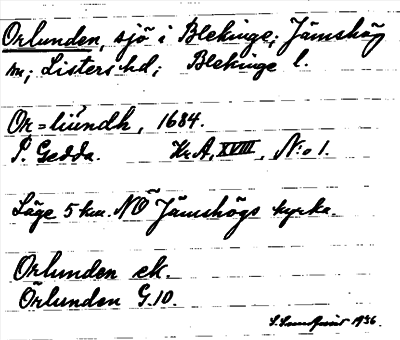 Orlunden, sjö i Blekinge; Jämshög
sn; Listers hd; Blekinge l.
Or=liundh, 1684.
P. Gedda. Kr A, XVIII, No 1.
Läge 5 km. NÖ Jämshögs kyrka.
Orlunden ek.
Örlunden G.10.
1936